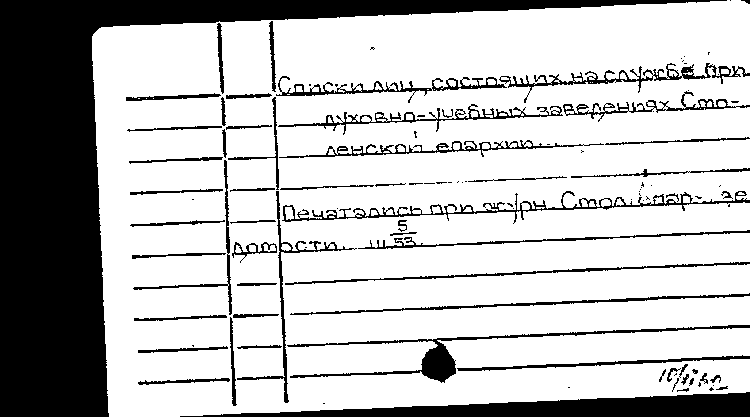 Списки лиц, состоящих на службе при
духовно-учебных заведениях Смо-
ленской епархии...
Печатались при журн. Смол. епар. ве
домости. III 5/33.